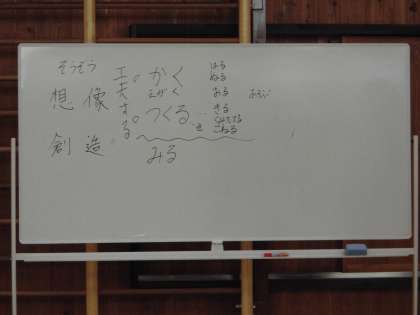 そうぞう
想像
創造
工夫する
かく
えがく
つくる
みる
はる
ぬる
おる
きる
くみたてる
こねる